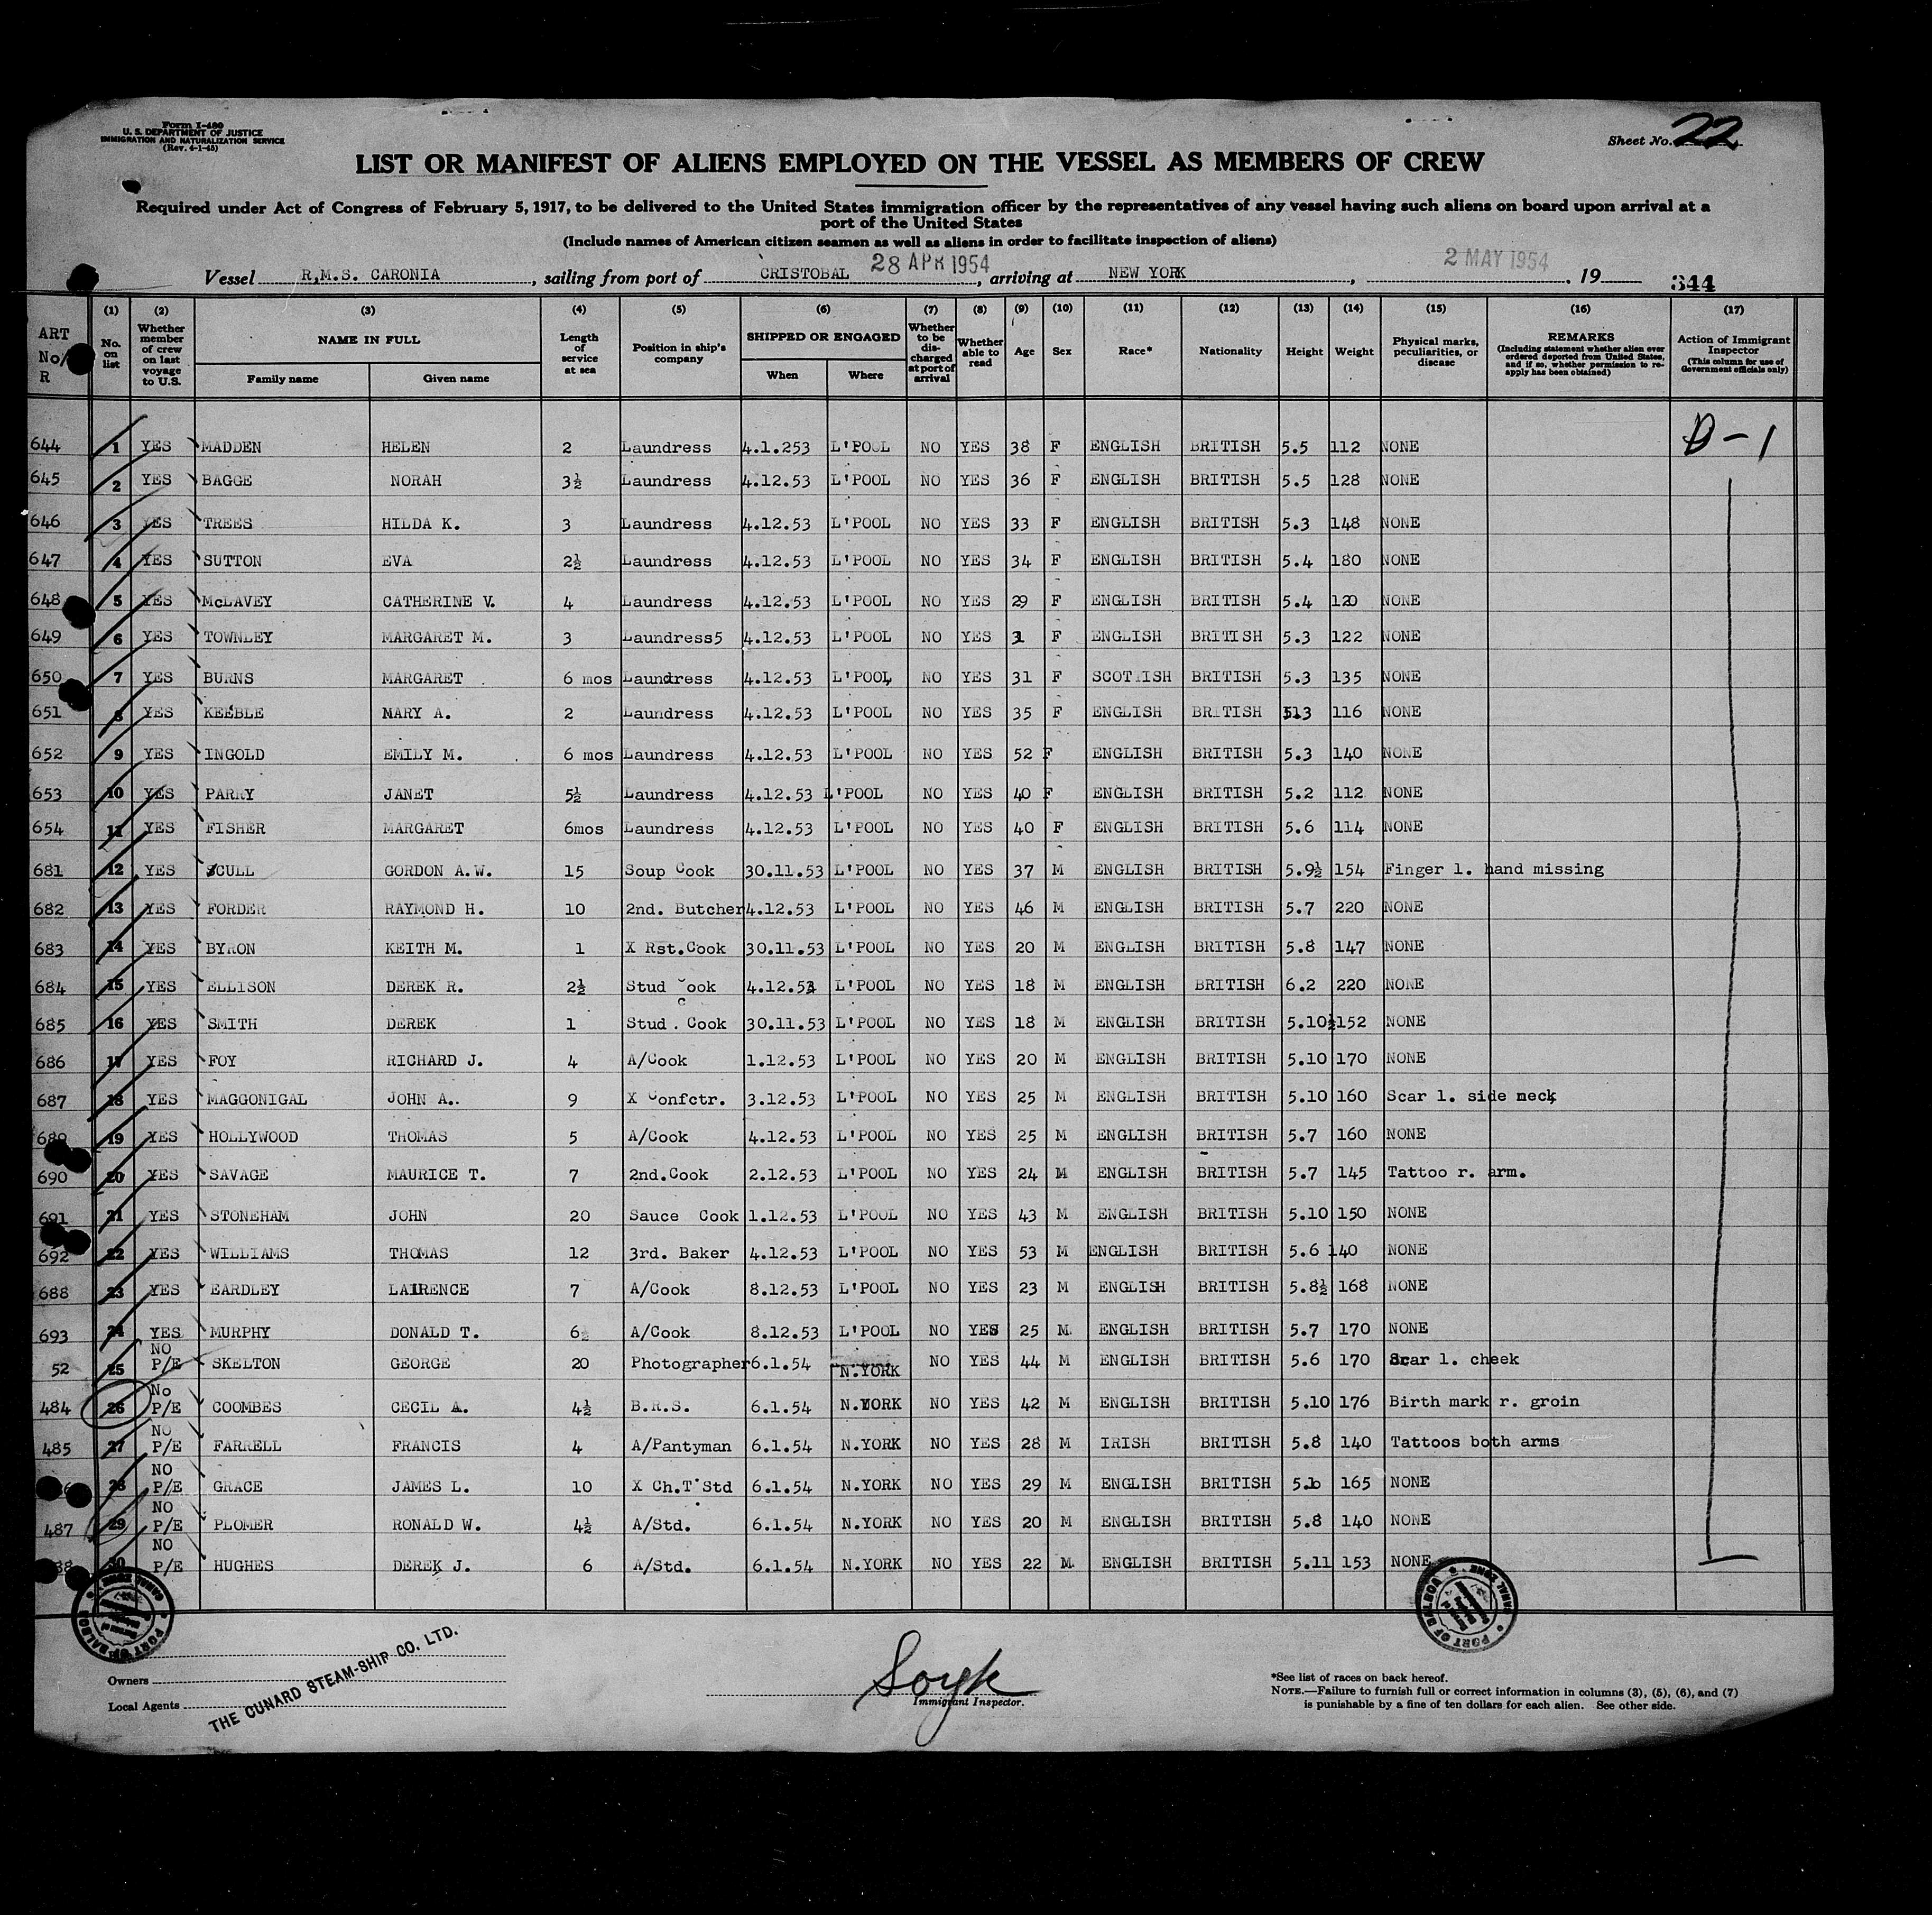 Form I-480
U. S. DEPARTMENT OF JUSTICE
IMMIGRATION AND NATURALIZATION SERVICE
(Rev. 4-1-45)
Sheet No. 22
LIST OR MANIFEST OF ALIENS EMPLOYED ON THE VESSEL AS MEMBERS OF CREW
Required under Act of Congress of February 5, 1917, to be delivered to the United States immigration officer by the representatives of any vessel having such aliens on board upon arrival at a
port of the United States
(Include names of American citizen seamen as well as aliens in order to facilitate inspection of aliens)
Vessel R.M.S. CARONIA, sailing from port of CRISTOBAL 28 APR 1954, arriving at NEW YORK, 2 MAY 1954, 19 344
ART No/ R
(1) No. on list
(2) Whether member of crew on last voyage to U.S.
(3) NAME IN FULL Family name Given name
(4) Length of service at sea
(5) Position in ship's company
(6) SHIPPED OR ENGAGED When Where
(7) Whether to be discharged at port of arrival
(8) Whether able to read
(9) Age
(10) Sex
(11) Race*
(12) Nationality
(13) Height
(14) Weight
(15) Physical marks, peculiarities, or disease
(16) REMARKS (Including statement whether alien ever ordered deported from United States, and if so, whether permission to reapply has been obtained)
(17) Action of Immigrant Inspector (This column for use of Government officials only)
644 1 YES MADDEN HELEN 2 Laundress 4.1.253 L'POOL NO YES 38 F ENGLISH BRITISH 5.5 112 NONE D-1
645 2 YES BAGGE NORAH 3½ Laundress 4.12.53 L'POOL NO YES 36 F ENGLISH BRITISH 5.5 128 NONE
646 3 YES TREES HILDA K. 3 Laundress 4.12.53 L'POOL NO YES 33 F ENGLISH BRITISH 5.3 148 NONE
647 4 YES SUTTON EVA 2½ Laundress 4.12.53 L'POOL NO YES 34 F ENGLISH BRITISH 5.4 180 NONE
648 5 YES McLAVEY CATHERINE V. 4 Laundress 4.12.53 L'POOL NO YES 29 F ENGLISH BRITISH 5.4 120 NONE
649 6 YES TOWNLEY MARGARET M. 3 Laundress5 4.12.53 L'POOL NO YES 31 F ENGLISH BRITISH 5.3 122 NONE
650 7 YES BURNS MARGARET 6 mos Laundress 4.12.53 L'POOL NO YES 31 F SCOTTISH BRITISH 5.3 135 NONE
651 8 YES KEEBLE MARY A. 2 Laundress 4.12.53 L'POOL NO YES 35 F ENGLISH BRITISH 116 NONE
652 9 YES INGOLD EMILY M. 6 mos Laundress 4.12.53 L'POOL NO YES 52 F ENGLISH BRITISH 5.3 140 NONE
653 10 YES PARRY JANET 5½ Laundress 4.12.53 L'POOL NO YES 40 F ENGLISH BRITISH 5.2 112 NONE
654 11 YES FISHER MARGARET 6mos Laundress 4.12.53 L'POOL NO YES 40 F ENGLISH BRITISH 5.6 114 NONE
681 12 YES SCULL GORDON A.W. 15 Soup Cook 30.11.53 L'POOL NO YES 37 M ENGLISH BRITISH 5.9½ 154 Finger l. hand missing
682 13 YES FORDER RAYMOND H. 10 2nd. Butcher 4.12.53 L'POOL NO YES 46 M ENGLISH BRITISH 5.7 220 NONE
683 14 YES BYRON KEITH M. 1 X Rst.Cook 30.11.53 L'POOL NO YES 20 M ENGLISH BRITISH 5.8 147 NONE
684 15 YES ELLISON DEREK R. 2½ Stud Cook 4.12.53 L'POOL NO YES 18 M ENGLISH BRITISH 6.2 220 NONE
685 16 YES SMITH DEREK 1 Stud. Cook 30.11.53 L'POOL NO YES 18 M ENGLISH BRITISH 5.10½ 152 NONE
686 17 YES FOY RICHARD J. 4 A/Cook 1.12.53 L'POOL NO YES 20 M ENGLISH BRITISH 5.10 170 NONE
687 18 YES MAGGONIGAL JOHN A.. 9 X Confctr. 3.12.53 L'POOL NO YES 25 M ENGLISH BRITISH 5.10 160 Scar l. side neck
689 19 YES HOLLYWOOD THOMAS 5 A/Cook 4.12.53 L'POOL NO YES 25 M ENGLISH BRITISH 5.7 160 NONE
690 20 YES SAVAGE MAURICE T. 7 2nd.Cook 2.12.53 L'POOL NO YES 24 M ENGLISH BRITISH 5.7 145 Tattoo r. arm.
691 21 YES STONEHAM JOHN 20 Sauce Cook 1.12.53 L'POOL NO YES 43 M ENGLISH BRITISH 5.10 150 NONE
692 22 YES WILLIAMS THOMAS 12 3rd. Baker 4.12.53 L'POOL NO YES 53 M ENGLISH BRITISH 5.6 140 NONE
688 23 YES EARDLEY LAURENCE 7 A/Cook 8.12.53 L'POOL NO YES 23 M ENGLISH BRITISH 5.8½ 168 NONE
693 24 YES MURPHY DONALD T. 6½ A/Cook 8.12.53 L'POOL NO YES 25 M ENGLISH BRITISH 5.7 170 NONE
52 25 NO P/E SKELTON GEORGE 20 Photographer 6.1.54 N.YORK NO YES 44 M ENGLISH BRITISH 5.6 170 Scar l. cheek
484 26 No P/E COOMBES CECIL A. 4½ B.R.S. 6.1.54 N.YORK NO YES 42 M ENGLISH BRITISH 5.10 176 Birth mark r. groin
485 27 NO P/E FARRELL FRANCIS 4 A/Pantyman 6.1.54 N.YORK NO YES 28 M IRISH BRITISH 5.8 140 Tattoos both arms
28 NO P/E GRACE JAMES L. 10 X Ch.T Std 6.1.54 N.YORK NO YES 29 M ENGLISH BRITISH 165 NONE
487 29 NO P/E PLOMER RONALD W. 4½ A/Std. 6.1.54 N.YORK NO YES 20 M ENGLISH BRITISH 5.8 140 NONE
30 NO P/E HUGHES DEREK J. 6 A/Std. 6.1.54 N.YORK NO YES 22 M ENGLISH BRITISH 5.11 153 NONE
PORT OF BALBOA CANAL ZONE
PORT OF BALBOA CANAL ZONE
Owners
Local Agents
THE CUNARD STEAM-SHIP CO. LTD.
Immigrant Inspector.
*See list of races on back hereof.
NOTE.—Failure to furnish full or correct information in columns (3), (5), (6), and (7)
is punishable by a fine of ten dollars for each alien. See other side.